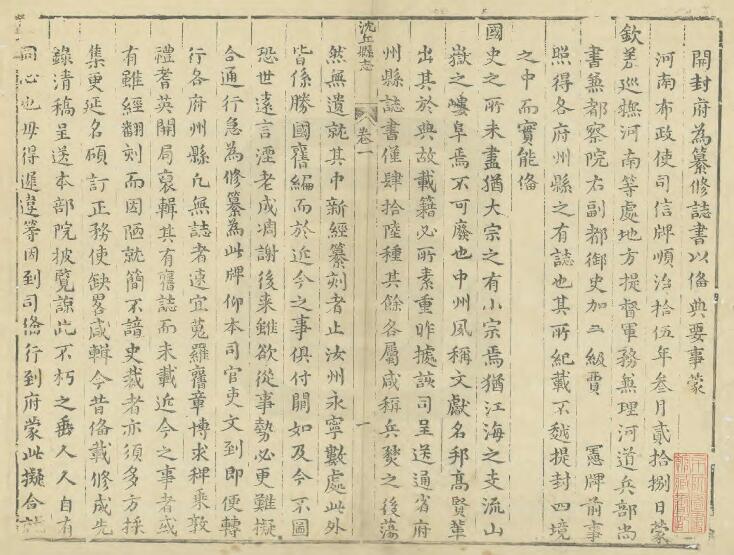 開封府為纂修誌書以俻典要事蒙
河南布政使司信牌順治拾伍年叁月貳拾捌日蒙
欽差巡撫河南等處地方提督軍務兼理河道兵部尚
書兼都察院右副都御史加二級賈　憲牌前事
照得各府州縣之有誌也其所紀載不越提封四境
之中而實能俻
國史之所未盡猶大宗之有小宗焉猶江海之支流山
嶽之嶁阜焉不可廢也中州夙稱文獻名邦髙賢輩
出其於典故載籍必所素重昨據該司呈送通省府
州縣誌書僅肆拾陸種其餘各屬咸稱兵燹之後蕩
沈丘縣志　卷一　一
然無遺就其中新經纂刻者止汝州永寧數處此外
皆係勝國舊編而於近今之事俱付闕如及今不圖
恐世遠言湮老成凋謝後来雖欲從事勢必更難擬
合通行急為修纂為此牌仰本司官吏文到即便轉
行各府州縣凡無誌者速宜蒐羅舊章博求稗乘敦
禮耆英開局裒輯其有舊誌而未載近今之事者或
有雖經翻刻而因陋就簡不諳史裁者亦須多方採
集更延名碩訂正務使缺畧咸輯今昔俻載修成先
錄清稿呈送本部院披覽諒此不朽之垂人人自有
同心也毋得遲違等因到司俻行到府蒙此擬合就